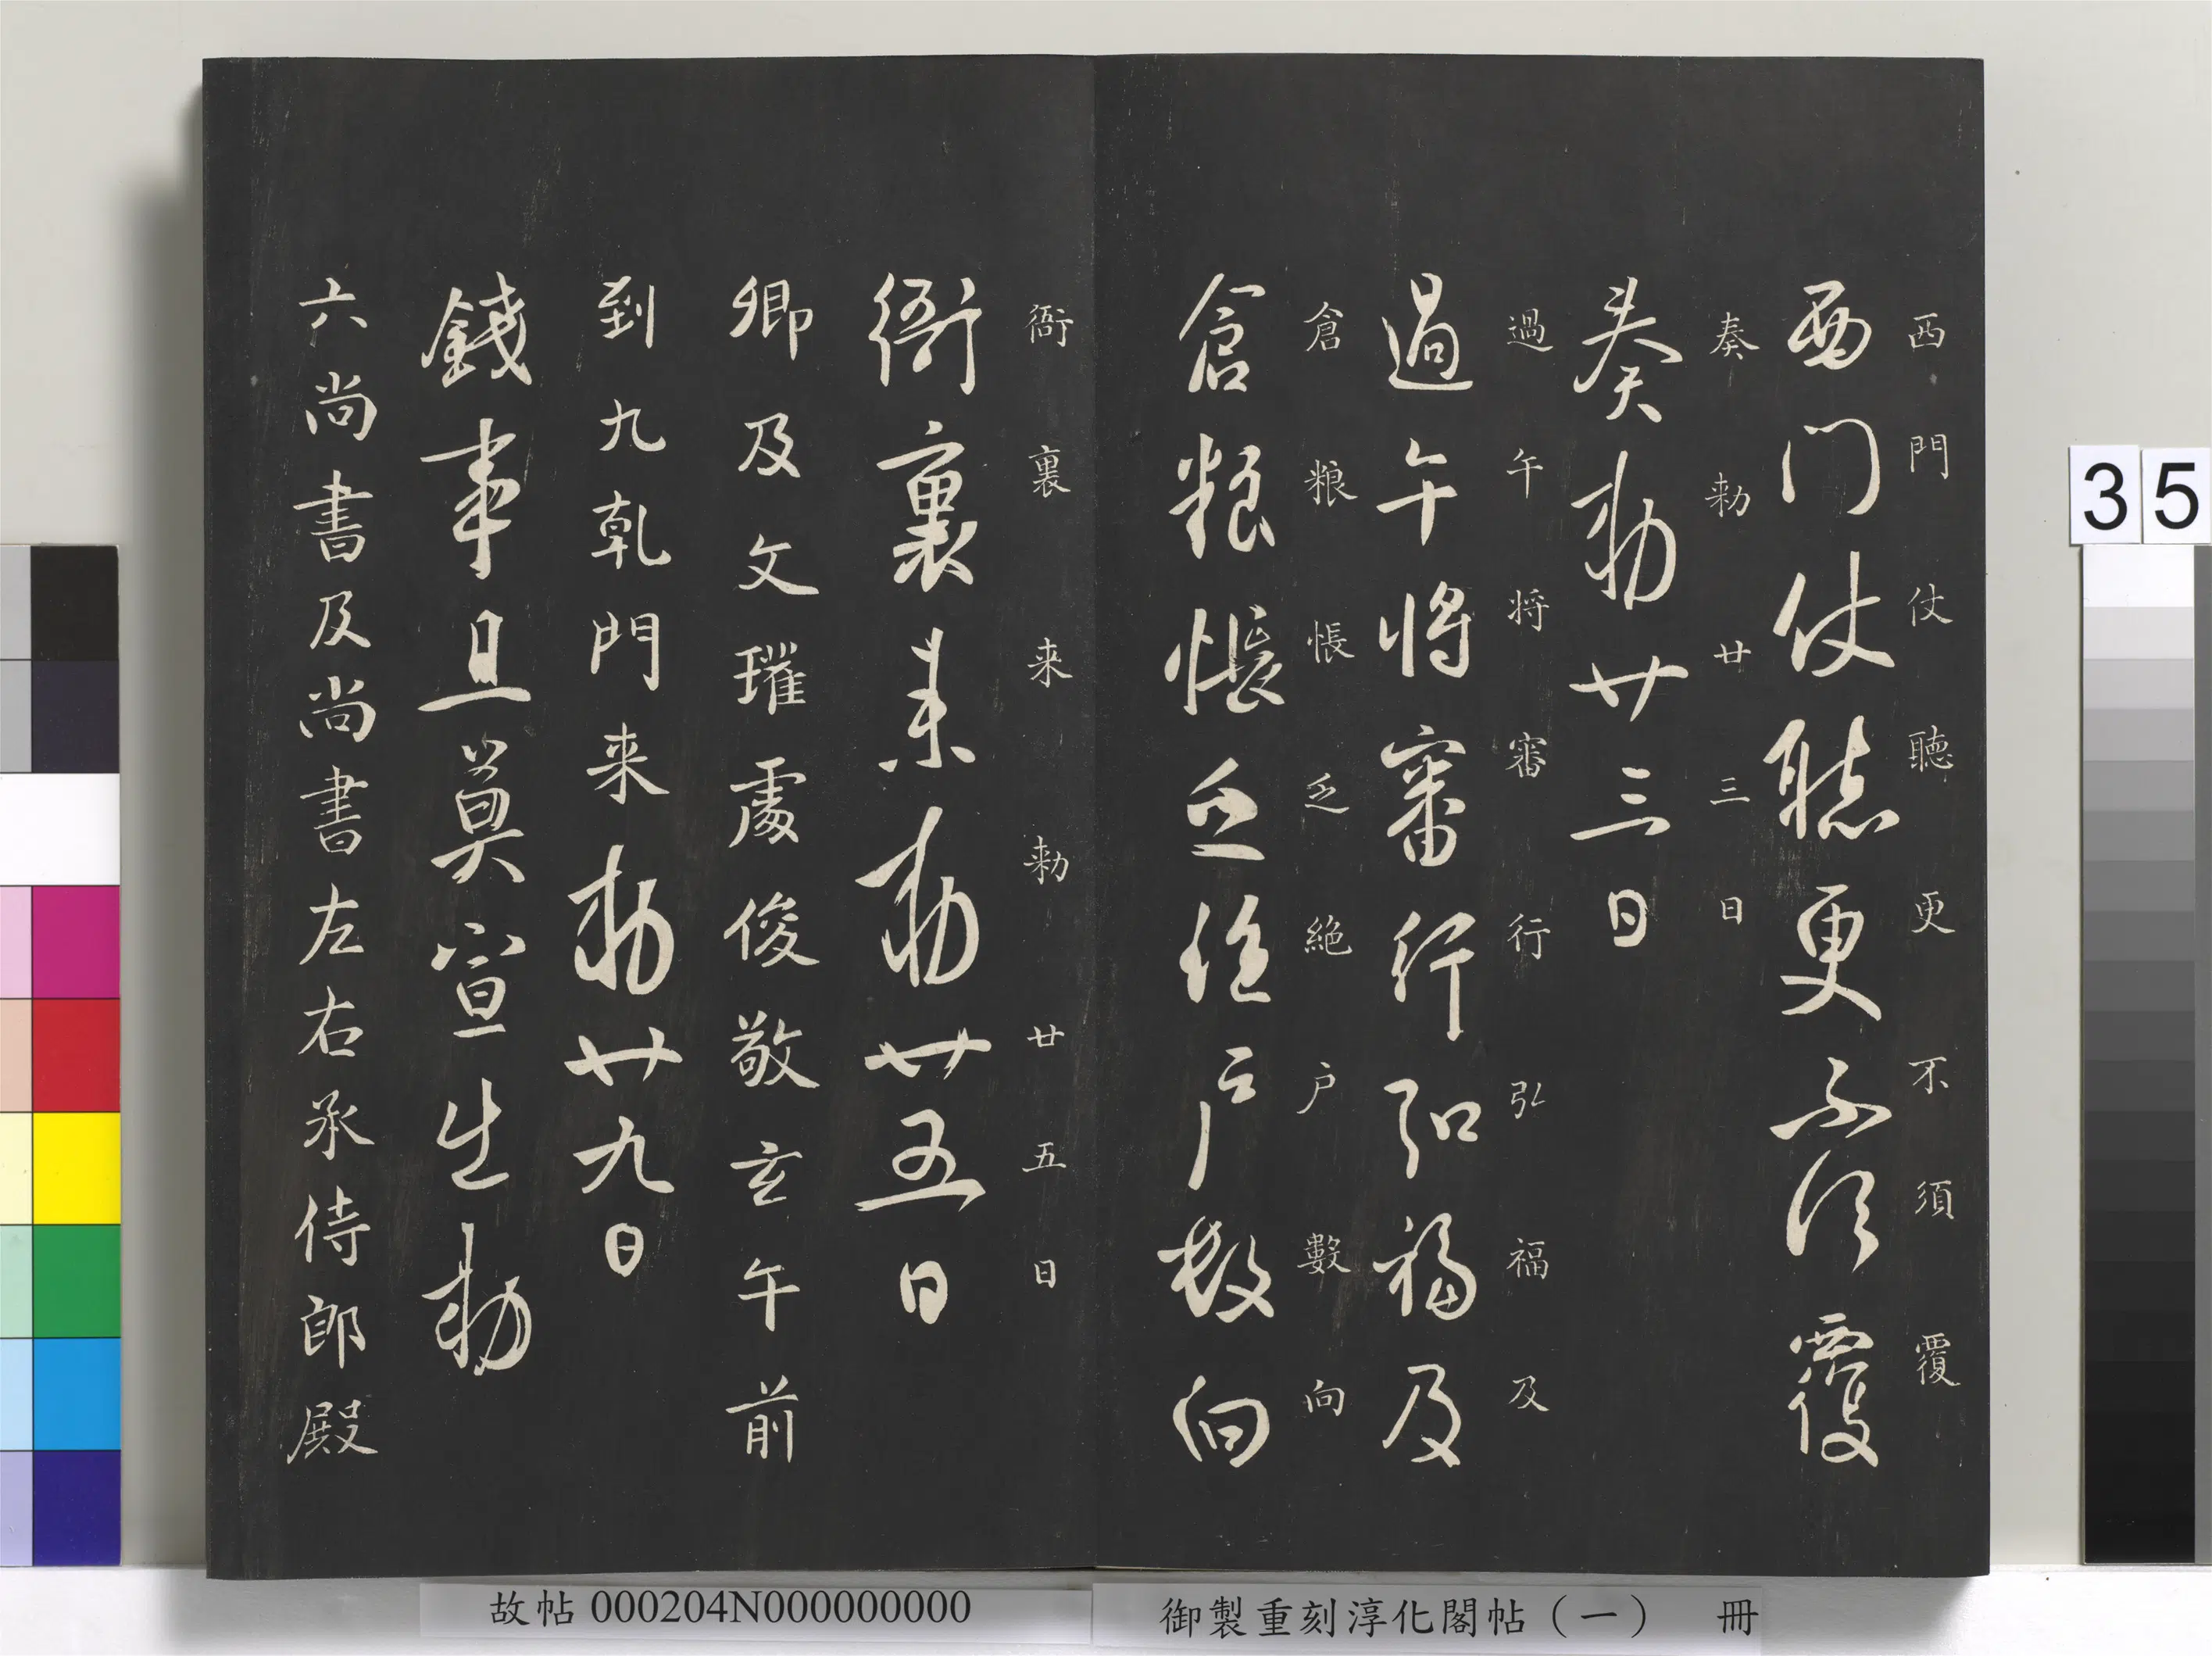 西門仗聽更不須覆
西門仗聽更不須覆
奏勑廿三日
奏勑廿三日
過午将審行弘福及
過午将審行弘福及
倉粮悵乏絶户數向
倉粮悵乏絶户數向
衙裏来勑廿五日
衙裏来勑廿五日
卿及文瓘處俊敬玄午前
到九乹門来勑廿九日
錢事且莫宣出勑
六尚書及尚書左右承侍郎殿
35
故帖 000204N000000000
御製重刻淳化閣帖（一） 冊